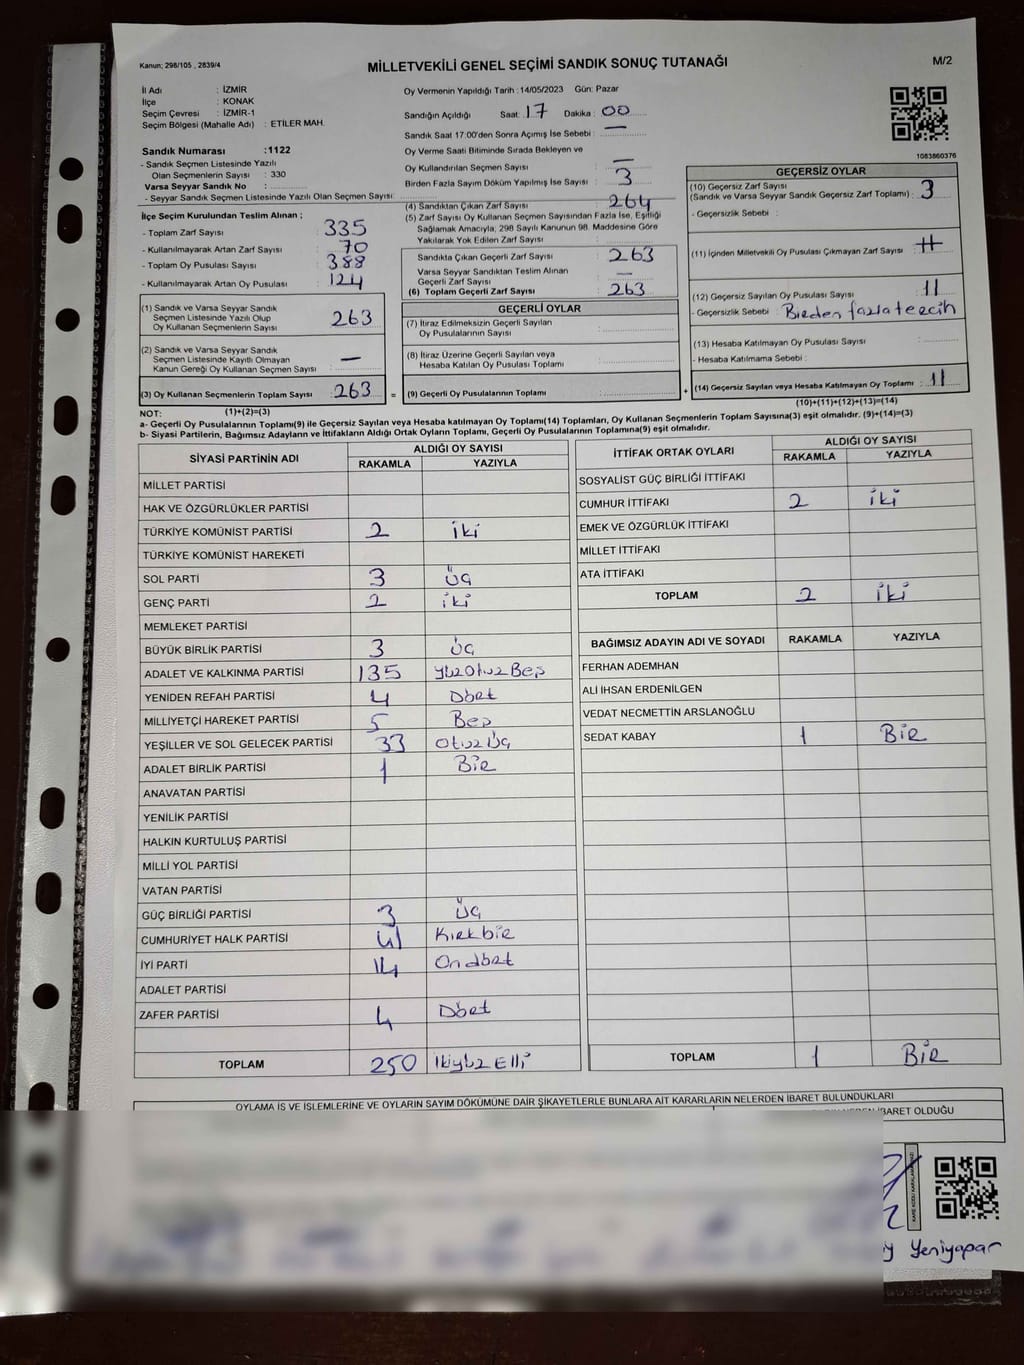 Kanun; 298/105 , 2839/4
MİLLETVEKİLİ GENEL SEÇİMİ SANDIK SONUÇ TUTANAĞI
M/2
İl Adı : İZMİR
İlçe : KONAK
Seçim Çevresi : İZMİR-1
Seçim Bölgesi (Mahalle Adı) : ETİLER MAH.
Sandık Numarası :1122
- Sandık Seçmen Listesinde Yazılı
Olan Seçmenlerin Sayısı : 330
Varsa Seyyar Sandık No :
- Seyyar Sandık Seçmen Listesinde Yazılı Olan Seçmenlerin Sayısı:
Oy Vermenin Yapıldığı Tarih : 14/05/2023 Gün: Pazar
Sandığın Açıldığı Saat: 17 Dakika : 00
Sandık Saat 17:00'den Sonra Açımış İse Sebebi : —
Oy Verme Saati Bitiminde Sırada Bekleyen ve
Oy Kullandırılan Seçmen Sayısı : —
Birden Fazla Sayım Döküm Yapılmış İse Sayısı : 3
1083860376
İlçe Seçim Kurulundan Teslim Alınan ;
- Toplam Zarf Sayısı : 335
- Kullanılmayarak Artan Zarf Sayısı : 70
- Toplam Oy Pusulası Sayısı : 388
- Kullanılmayarak Artan Oy Pusulası : 124
(1) Sandık ve Varsa Seyyar Sandık
Seçmen Listesinde Yazılı Olup
Oy Kullanan Seçmenlerin Sayısı : 263
(2) Sandık ve Varsa Seyyar Sandık
Seçmen Listesinde Kayıtlı Olmayan
Kanun Gereği Oy Kullanan Seçmen Sayısı : —
(3) Oy Kullanan Seçmenlerin Toplam Sayısı : 263
(1)+(2)=(3)
(4) Sandıktan Çıkan Zarf Sayısı : 264
(5) Zarf Sayısı Oy Kullanan Seçmen Sayısından Fazla İse, Eşitliği
Sağlamak Amacıyla, 298 Sayılı Kanunun 98. Maddesine Göre
Yakılarak Yok Edilen Zarf Sayısı :
Sandıkta Çıkan Geçerli Zarf Sayısı : 263
Varsa Seyyar Sandıktan Teslim Alınan
Geçerli Zarf Sayısı : —
(6) Toplam Geçerli Zarf Sayısı : 263
GEÇERLİ OYLAR
(7) İtiraz Edilmeksizin Geçerli Sayılan
Oy Pusulalarının Sayısı :
(8) İtiraz Üzerine Geçerli Sayılan veya
Hesaba Katılan Oy Pusulası Toplamı :
= (9) Geçerli Oy Pusulalarının Toplamı : +
GEÇERSİZ OYLAR
(10) Geçersiz Zarf Sayısı
(Sandık ve Varsa Seyyar Sandık Geçersiz Zarf Toplamı) : 3
- Geçersizlik Sebebi :
(11) İçinden Milletvekili Oy Pusulası Çıkmayan Zarf Sayısı :
(12) Geçersiz Sayılan Oy Pusulası Sayısı : 11
- Geçersizlik Sebebi : Birden fazla tercih
(13) Hesaba Katılmayan Oy Pusulası Sayısı :
- Hesaba Katılmama Sebebi :
(14) Geçersiz Sayılan veya Hesaba Katılmayan Oy Toplamı : 11
(10)+(11)+(12)+(13)=(14)
NOT:
a- Geçerli Oy Pusulalarının Toplamı(9) ile Geçersiz Sayılan veya Hesaba katılmayan Oy Toplamı(14) Toplamları, Oy Kullanan Seçmenlerin Toplam Sayısına(3) eşit olmalıdır. (9)+(14)=(3)
b- Siyasi Partilerin, Bağımsız Adayların ve İttifakların Aldığı Ortak Oyların Toplamı, Geçerli Oy Pusulalarının Toplamına(9) eşit olmalıdır.
SİYASİ PARTİNİN ADI ALDIĞI OY SAYISI
RAKAMLA YAZIYLA
MİLLET PARTİSİ
HAK VE ÖZGÜRLÜKLER PARTİSİ
TÜRKİYE KOMÜNİST PARTİSİ 2 iki
TÜRKİYE KOMÜNİST HAREKETİ
SOL PARTİ 3 üç
GENÇ PARTİ 2 iki
MEMLEKET PARTİSİ
BÜYÜK BİRLİK PARTİSİ 3 üç
ADALET VE KALKINMA PARTİSİ 135 yüzOtuzBeş
YENİDEN REFAH PARTİSİ 4 Dört
MİLLİYETÇİ HAREKET PARTİSİ 5 Beş
YEŞİLLER VE SOL GELECEK PARTİSİ 33 otuzüç
ADALET BİRLİK PARTİSİ 1 Bir
ANAVATAN PARTİSİ
YENİLİK PARTİSİ
HALKIN KURTULUŞ PARTİSİ
MİLLİ YOL PARTİSİ
VATAN PARTİSİ
GÜÇ BİRLİĞİ PARTİSİ 3 üç
CUMHURİYET HALK PARTİSİ 41 Kırkbir
İYİ PARTİ 14 Ondört
ADALET PARTİSİ
ZAFER PARTİSİ 4 Dört
TOPLAM 250 İkiyüz Elli
İTTİFAK ORTAK OYLARI ALDIĞI OY SAYISI
RAKAMLA YAZIYLA
SOSYALİST GÜÇ BİRLİĞİ İTTİFAKI
CUMHUR İTTİFAKI 2 iki
EMEK VE ÖZGÜRLÜK İTTİFAKI
MİLLET İTTİFAKI
ATA İTTİFAKI
TOPLAM 2 iki
BAĞIMSIZ ADAYIN ADI VE SOYADI RAKAMLA YAZIYLA
FERHAN ADEMHAN
ALİ İHSAN ERDENİLGEN
VEDAT NECMETTİN ARSLANOĞLU
SEDAT KABAY 1 Bir
TOPLAM 1 Bir
OYLAMA İŞ VE İŞLEMLERİNE VE OYLARIN SAYIM DÖKÜMÜNE DAİR ŞİKAYETLERLE BUNLARA AİT KARARLARIN NELERDEN İBARET BULUNDUKLARI
İBARET OLDUĞU
Yeniyapar